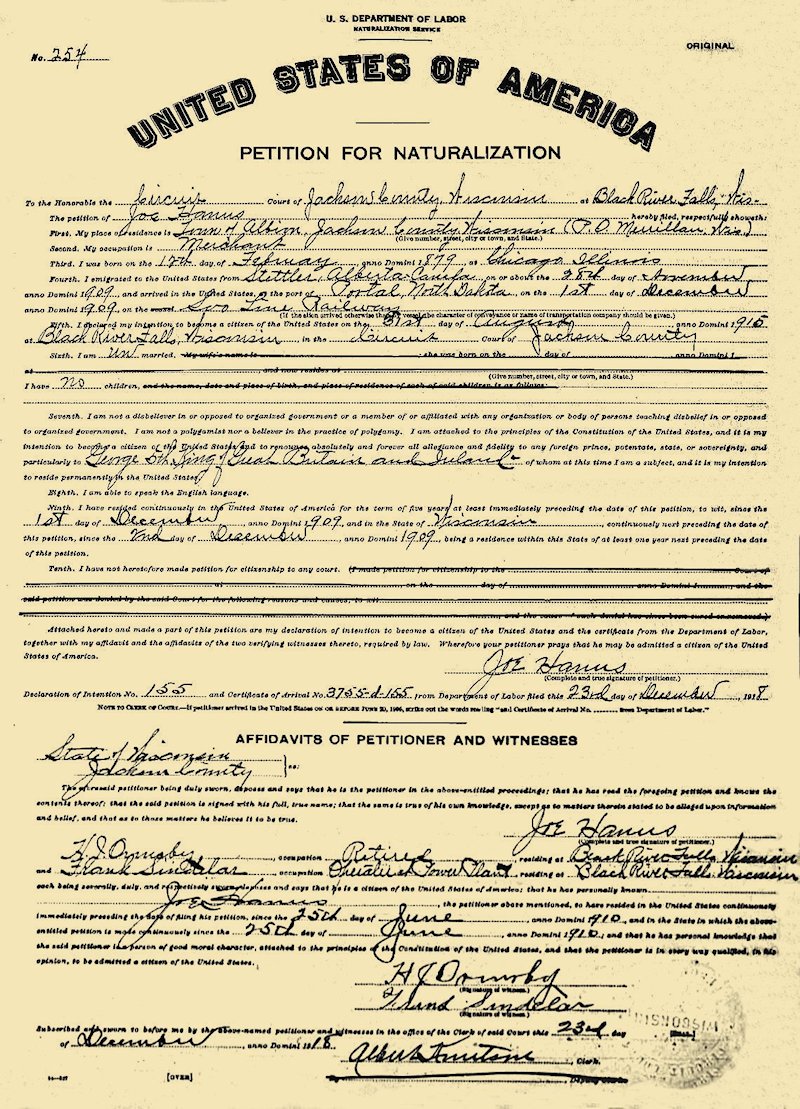 U. S. DEPARTMENT OF LABOR
NATURALIZATION SERVICE
No. 254
ORIGINAL
UNITED STATES OF AMERICA
PETITION FOR NATURALIZATION
To the Honorable the Circuit Court of Jackson County, Wisconsin at Black River Falls, Wis.
The petition of Joe Hanus hereby filed, respectfully showeth:
First. My place of residence is Town of Albion, Jackson County Wisconsin (P.O. Merrillan, Wis.)
(Give number, street, city or town, and State.)
Second. My occupation is Merchant
Third. I was born on the 12th day of February anno Domini 1879 at Chicago Illinois
Fourth. I emigrated to the United States from Stettler, Alberta Canada on or about the 28th day of November
anno Domini 1909 and arrived in the United States, at the port of Portal, North Dakota on the 1st day of December
anno Domini 1909, on the vessel Soo Line Railway
(If the alien arrived otherwise than by vessel, the character of conveyance or name of transportation company should be given.)
Fifth. I declared my intention to become a citizen of the United States on the 31st day of August anno Domini 1915
at Black River Falls, Wisconsin in the Circuit Court of Jackson County
Sixth. I am un married. My wife's name is she was born on the day of anno Domini 1
at and now resides at
(Give number, street, city or town, and State.)
I have no children, and the name, date and place of birth, and place of residence of each of said children is as follows:
Seventh. I am not a disbeliever in or opposed to organized government or a member of or affiliated with any organization or body of persons teaching disbelief in or opposed
to organized government. I am not a polygamist nor a believer in the practice of polygamy. I am attached to the principles of the Constitution of the United States, and it is my
intention to become a citizen of the United States and to renounce absolutely and forever all allegiance and fidelity to any foreign prince, potentate, state, or sovereignty, and
particularly to George 5th King of Great Britain and Ireland of whom at this time I am a subject, and it is my intention
to reside permanently in the United States.
Eighth. I am able to speak the English language.
Ninth. I have resided continuously in the United States of America for the term of five years at least immediately preceding the date of this petition, to wit, since the
1st day of December anno Domini 1909, and in the State of Wisconsin, continuously next preceding the date of
this petition, since the 2nd day of December, anno Domini 1909, being a residence within this State of at least one year next preceding the date
of this petition.
Tenth. I have not heretofore made petition for citizenship to any court. (I made petition for citizenship to the Court of
at on the day of anno Domini 1 and the
said petition was denied by the said Court for the following reasons and causes, to wit
and the cause of such denial has since been cured or removed.)
Attached hereto and made a part of this petition are my declaration of intention to become a citizen of the United States and the certificate from the Department of Labor,
together with my affidavit and the affidavits of the two verifying witnesses thereto, required by law. Wherefore your petitioner prays that he may be admitted a citizen of the United
States of America.
Joe Hanus
(Complete and true signature of petitioner.)
Declaration of Intention No. 155 and Certificate of Arrival No. 3755-d-155 from Department of Labor filed this 23rd day of December, 1918
NOTE TO CLERK OF COURT.—If petitioner arrived in the United States ON OR BEFORE JUNE 29, 1906, strike out the words reading "and Certificate of Arrival No. from Department of Labor."
AFFIDAVITS OF PETITIONER AND WITNESSES
State of Wisconsin
Jackson County ss:
The aforesaid petitioner being duly sworn, deposes and says that he is the petitioner in the above-entitled proceedings; that he has read the foregoing petition and knows the
contents thereof; that the said petition is signed with his full, true name; that the same is true of his own knowledge, except as to matters therein stated to be alleged upon information
and belief, and that as to those matters he believes it to be true.
Joe Hanus
(Complete and true signature of petitioner.)
H J Ormsby, occupation Retired, residing at Black River Falls, Wisconsin
and Frank Sindelar occupation Operator at Power Plant, residing at Black River Falls Wisconsin
each being severally, duly, and respectively sworn, deposes and says that he is a citizen of the United States of America; that he has personally known
Joe Hanus, the petitioner above mentioned, to have resided in the United States continuously
immediately preceding the date of filing his petition, since the 25th day of June, anno Domini 1910, and in the State in which the above-
entitled petition is made continuously since the 25th day of June, anno Domini 1910; and that he has personal knowledge that
the said petitioner is a person of good moral character, attached to the principles of the Constitution of the United States, and that the petitioner is in every way qualified, in his
opinion, to be admitted a citizen of the United States.
H J Ormsby
(Signature of witness.)
Frank Sindelar
(Signature of witness.)
Subscribed and sworn to before me by the above-named petitioner and witnesses in the office of the Clerk of said Court this 23rd day
of December, anno Domini 1918.
[SEAL.]
Albert Knutson, Clerk.
By Deputy Clerk.
[OVER]